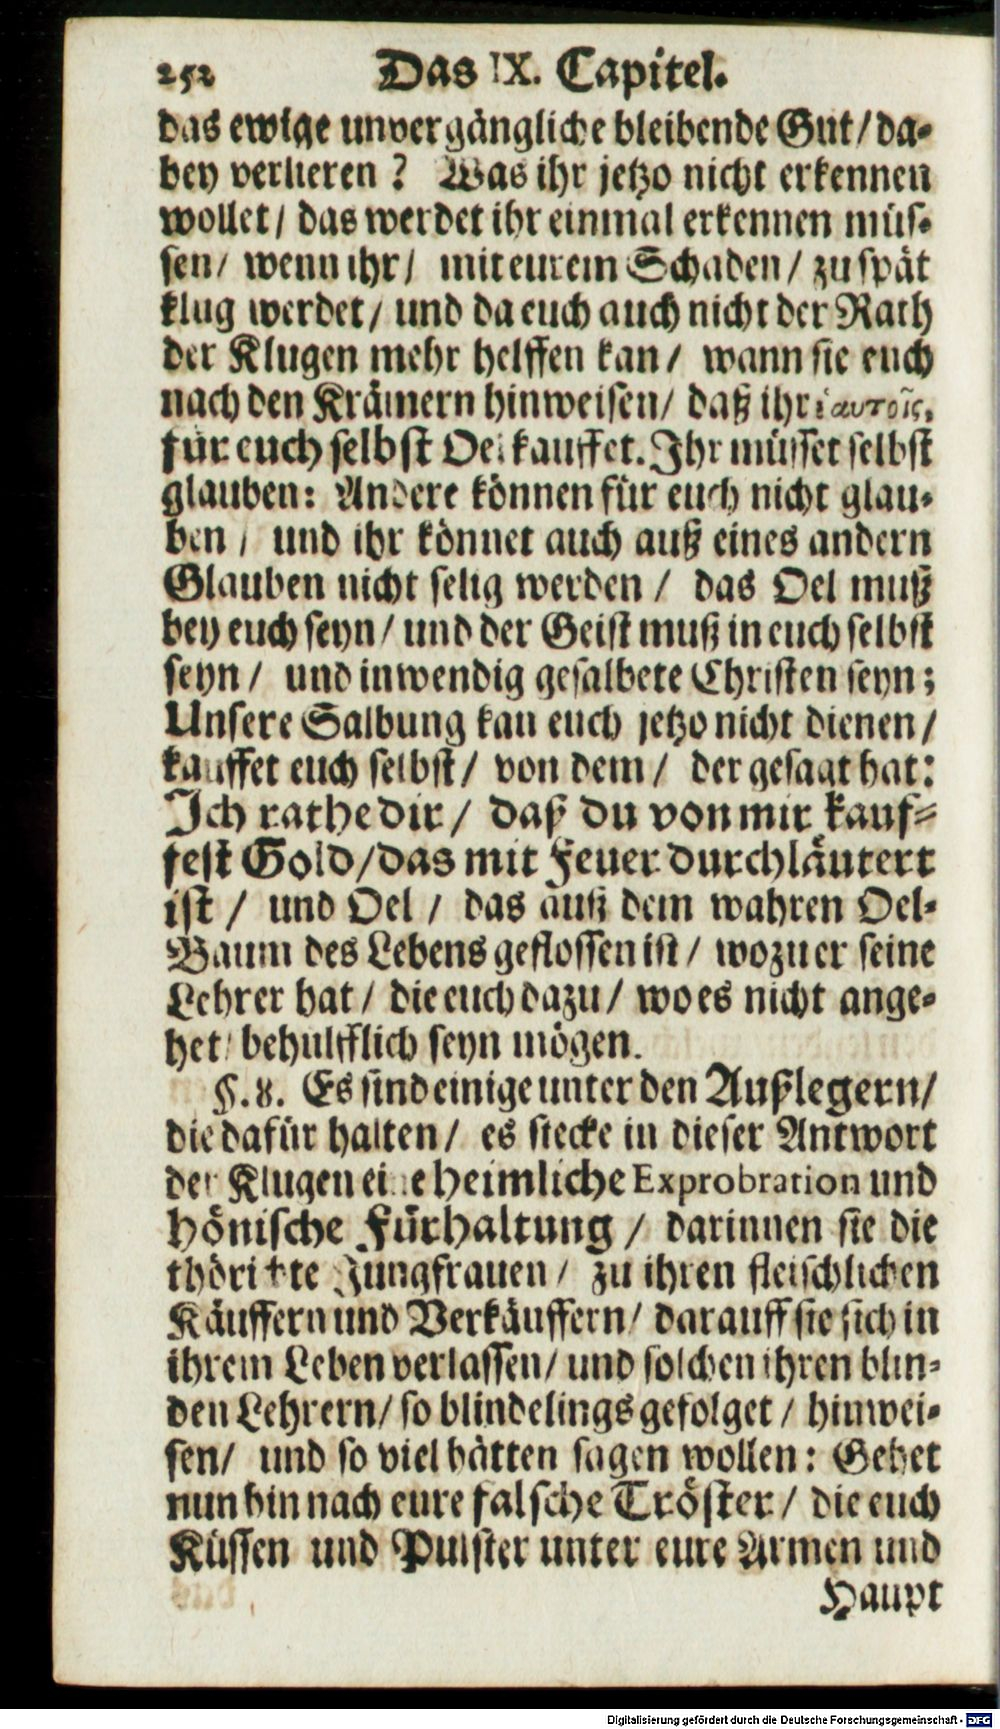 252 Das IX. Capitel.
das ewige unvergängliche bleibende Gut/ da-
bey verlieren? Was ihr jetzo nicht erkennen
wollet/ das werdet ihr einmal erkennen müs-
sen/ wenn ihr/ mit eurem Schaden/ zu spät
klug werdet/ und da euch auch nicht der Rath
der Klugen mehr helffen kan/ wann sie euch
nach den Krämern hinweisen/ daß ihr ἑαυτοῖς,
für euch selbst Oel kauffet. Ihr müsset selbst
glauben: Andere können für euch nicht glau-
ben/ und ihr könnet auch auß eines andern
Glauben nicht selig werden/ das Oel muß
bey euch seyn/ und der Geist muß in euch selbst
seyn/ und inwendig gesalbete Christen seyn;
Unsere Salbung kan euch jetzo nicht dienen/
kauffet euch selbst/ von dem/ der gesagt hat:
Ich rathe dir/ daß du von mir kauf-
fest Gold/ das mit Feuer durchläutert
ist/ und Oel/ das auß dem wahren Oel-
Baum des Lebens geflossen ist/ wozu er seine
Lehrer hat/ die euch dazu/ wo es nicht ange-
het/ behülfflich seyn mögen.
§. 8. Es sind einige unter den Außlegern/
die dafür halten/ es stecke in dieser Antwort
der Klugen eine heimliche Exprobration und
hönische Fürhaltung/ darinnen sie die
thörichte Jungfrauen/ zu ihren fleischlichen
Käuffern und Verkäuffern/ darauff sie sich in
ihrem Leben verlassen/ und solchen ihren blin-
den Lehrern/ so blindelings gefolget/ hinwei-
sen/ und so viel hätten sagen wollen: Gehet
nun hin nach eure falsche Tröster/ die euch
Küssen und Pulster unter eure Armen und
Haupt
Digitalisierung gefördert durch die Deutsche Forschungsgemeinschaft - DFG